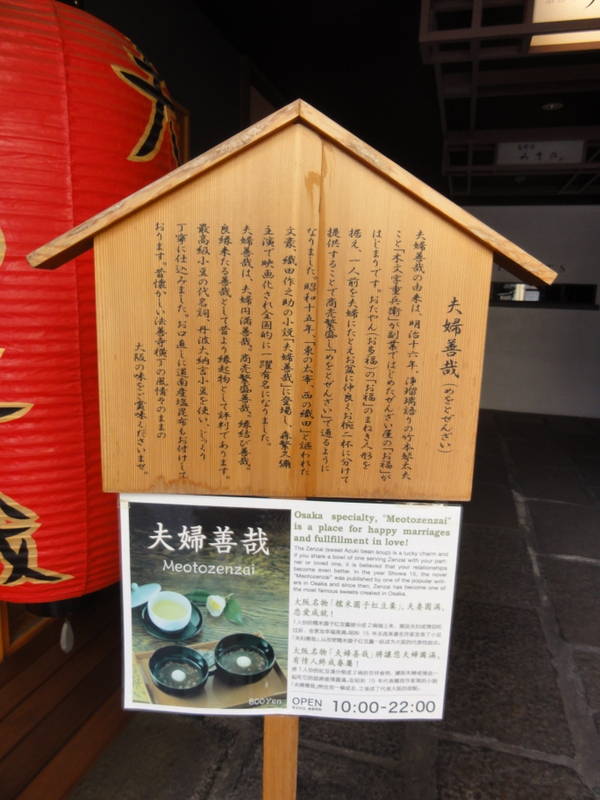 夫婦善哉(めをとぜんざい)
夫婦善哉の由来は、明治十六年、浄瑠璃語りの竹本琴太夫
こと「木文字重兵衛」が副業ではじめたぜんざい屋の「お福」が
はじまりです。おたやん(お多福)の「お福」のまねき人形を
据え、一人前を夫婦にたとえお盆に仲良くお椀二杯に分けて
提供することで商売繁盛し「めをとぜんざい」で通るように
なりました。昭和十五年、「東の太宰、西の織田」と謳われた
文豪、織田作之助の小説「夫婦善哉」に登場し、森繁久彌
主演で映画化され全国的に一躍有名になりました。
夫婦善哉は、夫婦円満善哉。商売繁盛善哉。縁結び善哉。
良縁来たる善哉として昔より縁起物として評判であります。
最高級小豆の代名詞、丹波大納言小豆を使い、じっくり
丁寧に仕込みました。お口直しに道南産塩昆布もお付けして
おります。昔懐かしい法善寺横丁の風情そのままの
大阪の味をご賞味くださいませ。
夫婦善哉
Meotozenzai
800Yen
Osaka specialty, "Meotozenzai"
is a place for happy marriages
and fullfillment in love!
The Zenzai (sweet Azuki bean soup) is a lucky charm and
if you share a bowl of one serving Zenzai with your part-
ner or loved one, it is believed that your relationships
become even better. In the year Showa 15, the novel
"Meotozenzai" was published by one of the popular writ-
ers in Osaka and since then, Zenzai has become one of
the most famous sweets created in Osaka.
大阪名物「糯米圓子紅豆羹」,夫妻圓滿,
戀愛成就!
大阪名物「夫妻善哉」將讓您夫婦圓滿、
有情人終成眷屬!
OPEN 10:00-22:00